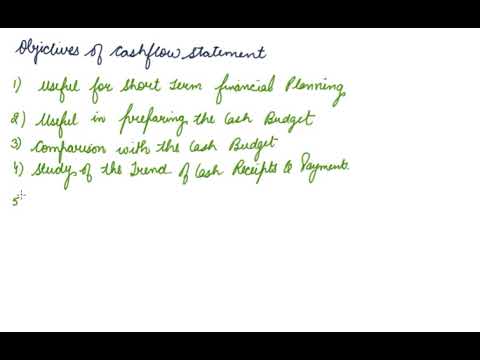 Objectives of Cashflow Statement
1) Useful for Short Term Financial Planning
2) Useful in preparing the Cash Budget
3) Comparison with the Cash Budget
4) Study of the Trend of Cash Receipts & Payment.
5